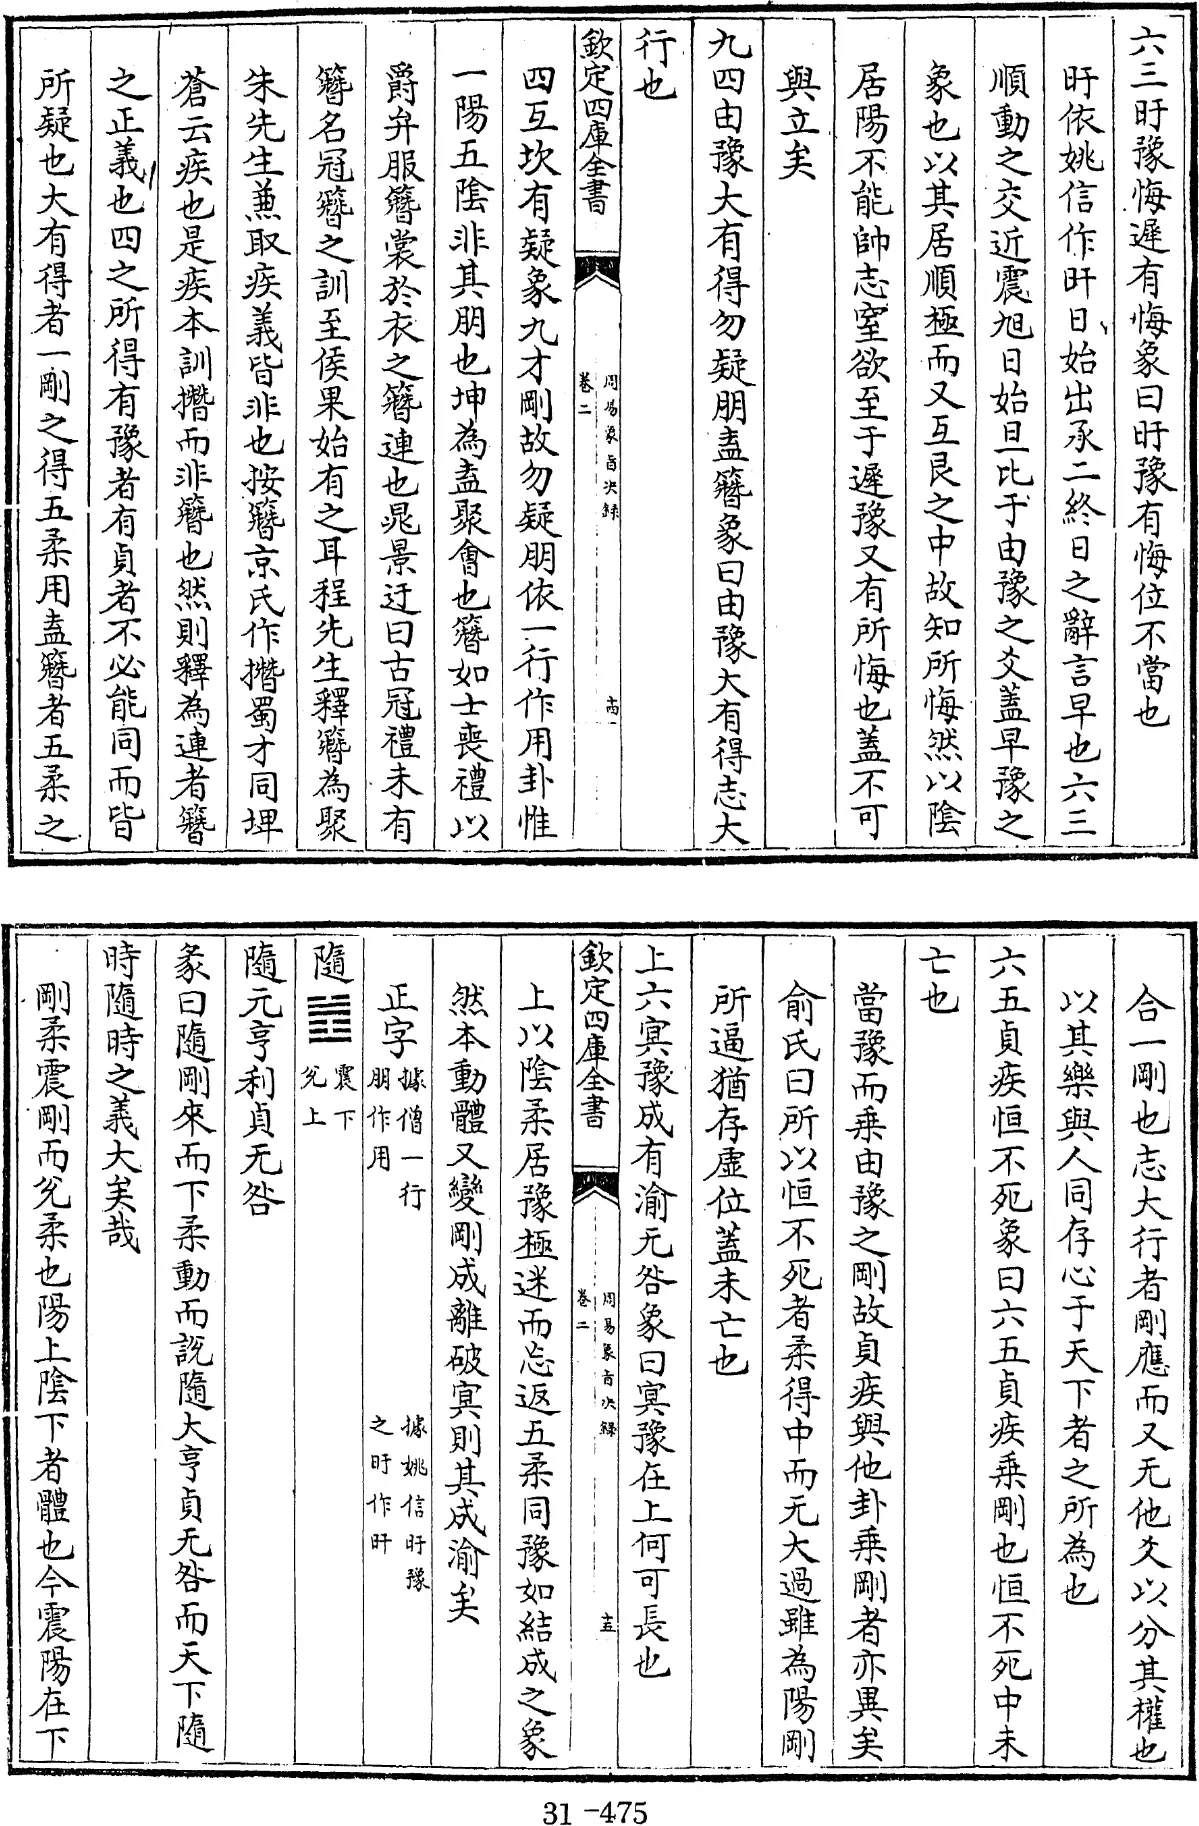 六三盱豫悔遲有悔象曰盱豫有悔位不當也
盱依姚信作旰日始出承二終日之辭言早也六三
順動之交近震旭日始旦比于由豫之爻蓋早豫之
象也以其居順極而又互艮之中故知所悔然以陰
居陽不能帥志窒欲至于遲豫又有所悔也蓋不可
與立矣
九四由豫大有得勿疑朋盍簪象曰由豫大有得志大
行也
欽定四庫全書
周易象旨決録
卷二
十四
四互坎有疑象九才剛故勿疑朋依一行作用卦惟
一陽五陰非其朋也坤為盍聚會也簪如士喪禮以
爵弁服簪裳於衣之簪連也晁景迂曰古冠禮未有
簪名冠簪之訓至侯果始有之耳程先生釋簪為聚
朱先生兼取疾義皆非也按簪京氏作撍蜀才同埤
蒼云疾也是疾本訓撍而非簪也然則釋為連者簪
之正義也四之所得有豫者有貞者不必能同而皆
所疑也大有得者一剛之得五柔用盍簪者五柔之
合一剛也志大行者剛應而又无他爻以分其權也
以其樂與人同存心于天下者之所為也
六五貞疾恒不死象曰六五貞疾乘剛也恒不死中未
亡也
當豫而乘由豫之剛故貞疾與他卦乘剛者亦異矣
俞氏曰所以恒不死者柔得中而无大過雖為陽剛
所逼猶存虛位蓋未亡也
上六冥豫成有渝无咎象曰冥豫在上何可長也
欽定四庫全書
周易象旨決録
卷二
十五
上以陰柔居豫極迷而忘返五柔同豫如結成之象
然本動體又變剛成離破冥則其成渝矣
正字 據僧一行朋作用 據姚信盱豫之盱作旰
隨䷐ 震下兌上
隨元亨利貞无咎
彖曰隨剛來而下柔動而說隨大亨貞无咎而天下隨
時隨時之義大矣哉
剛柔震剛而兌柔也陽上陰下者體也今震陽在下
31-475